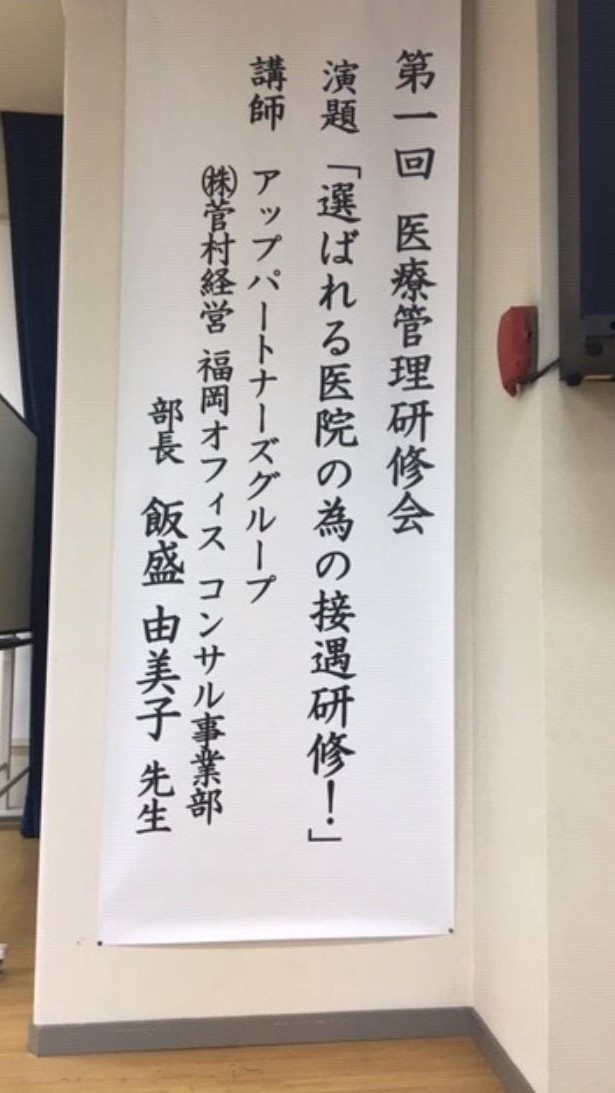 第一回 医療管理研修会
演題 「選ばれる医院の為の接遇研修！」
講師 アップパートナーズグループ
㈱菅村経営 福岡オフィス コンサル事業部
部長 飯盛 由美子 先生